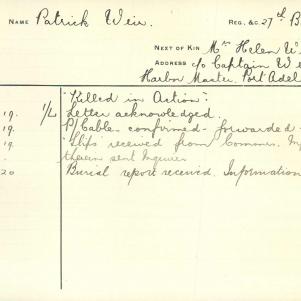 NAME Patrick Weir. REG. &C. 27th B
NEXT OF KIN Mrs Helen W
ADDRESS c/o Captain We
Harbor Master. Port Adel
"Killed in Action".
19. 1/L Letter acknowledged.
19. P/ Cable confirmed - forwarded
19. Slips received from Commn.
therein sent Inquirer
20 Burial report received. Information